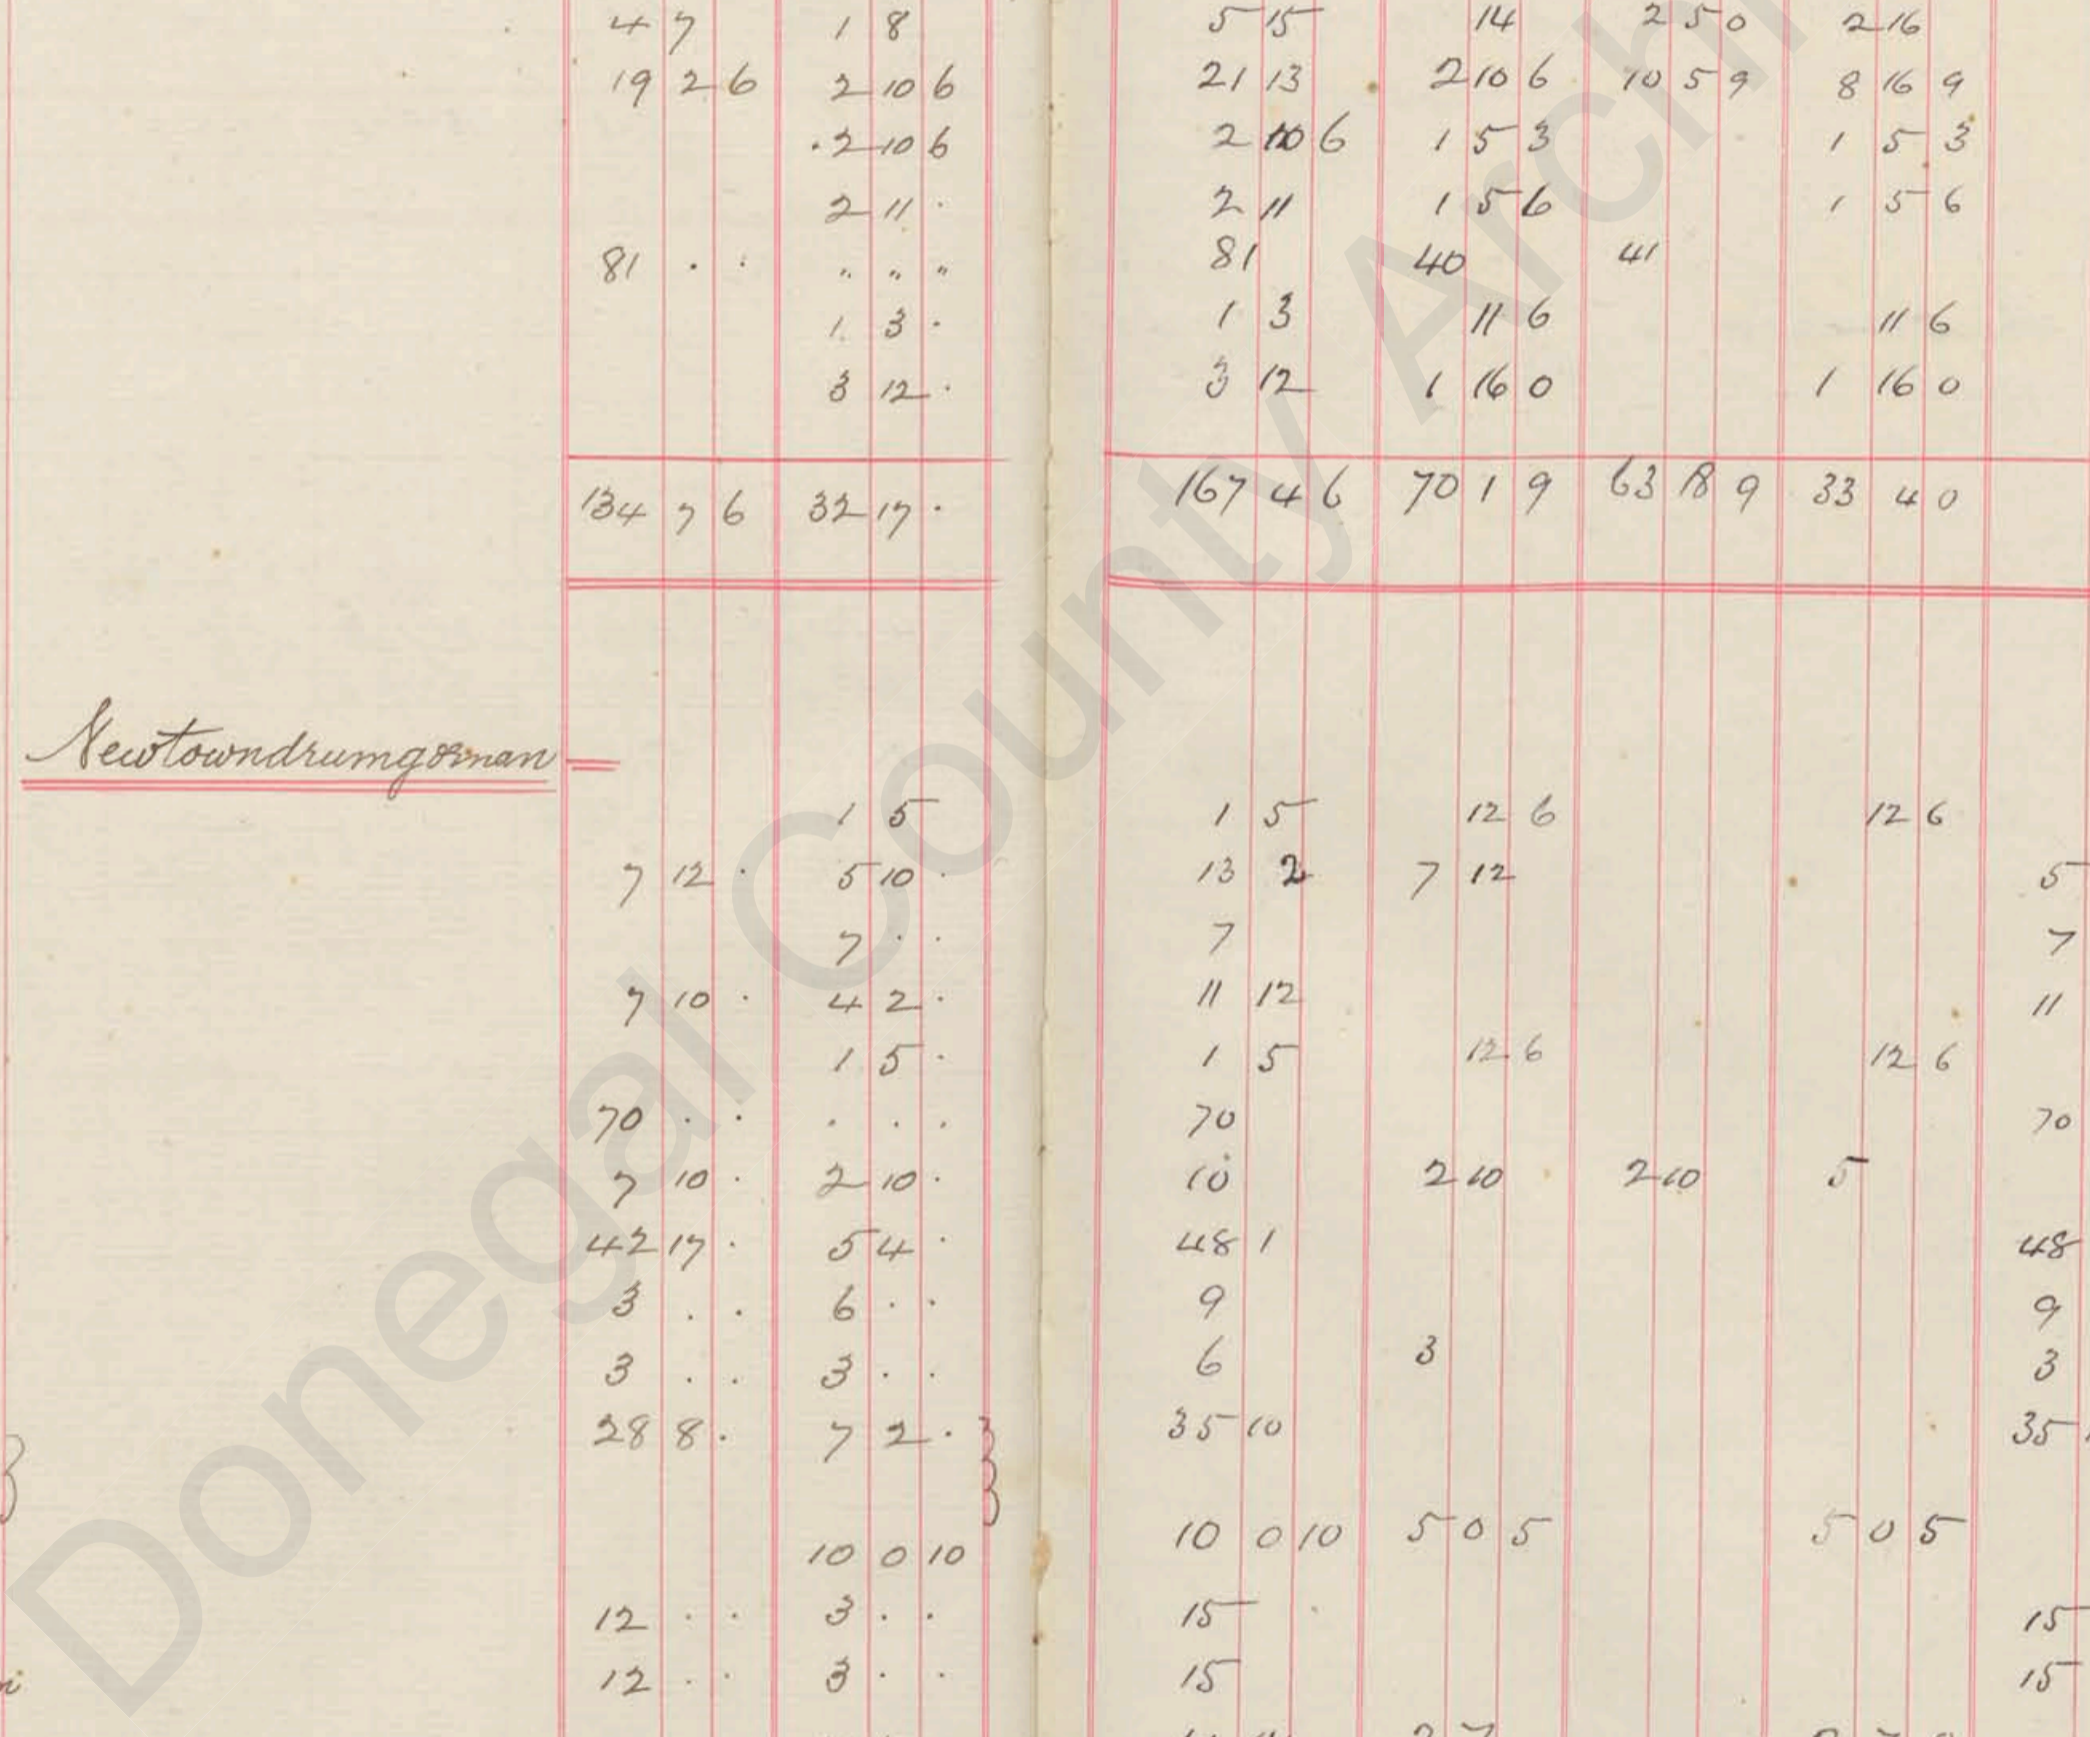 4 7 1 8 5 15 14 2 5 0 2 16
19 2 6 2 10 6 21 13 2 10 6 10 5 9 8 16 9
2 10 6 2 10 6 1 5 3 1 5 3
2 11 · 2 11 1 5 6 1 5 6
81 · · " " " 81 40 41
1 3 · 1 3 11 6 11 6
3 12 · 3 12 1 16 0 1 16 0
134 7 6 32 17 · 167 4 6 70 1 9 63 18 9 33 4 0
Newtowndrumgorman
1 5 1 5 12 6 12 6
7 12 · 5 10 · 13 2 7 12 5
7 · · 7 7
7 10 · 4 2 · 11 12 11
1 5 · 1 5 12 6 12 6
70 · · · · · 70 70
7 10 · 2 10 · 10 2 10 2 10 5
42 17 · 5 4 · 48 1 48
3 · · 6 · · 9 9
3 · · 3 · · 6 3 3
28 8 · 7 2 · 35 10 35
10 0 10 10 0 10 5 0 5 5 0 5
12 · · 3 · · 15 15
12 · · 3 · · 15 15
Donegal County Archi